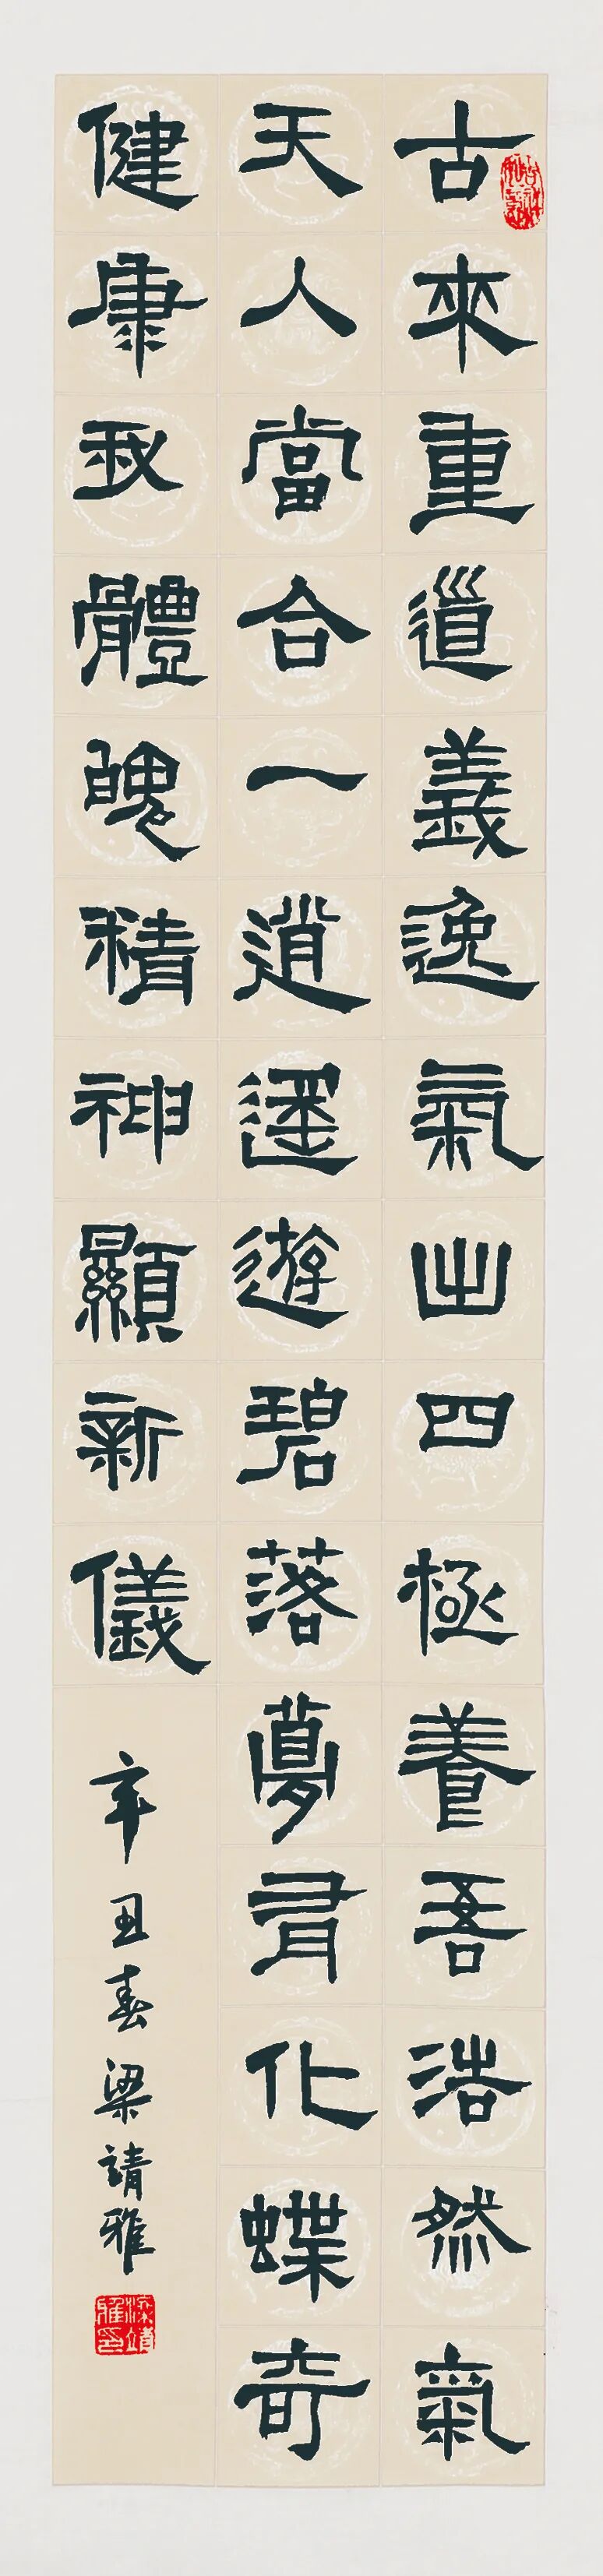 古來重道義逸氣出四極養吾浩然氣
天人當合一逍遙遊碧落夢肎化蝶奇
健康我體魄精神顯新儀
辛丑春梁靖雅
梁靖雅印